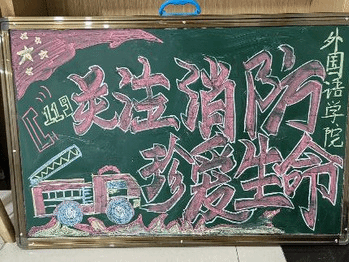 119
关注消防
珍爱生命
外国语学院